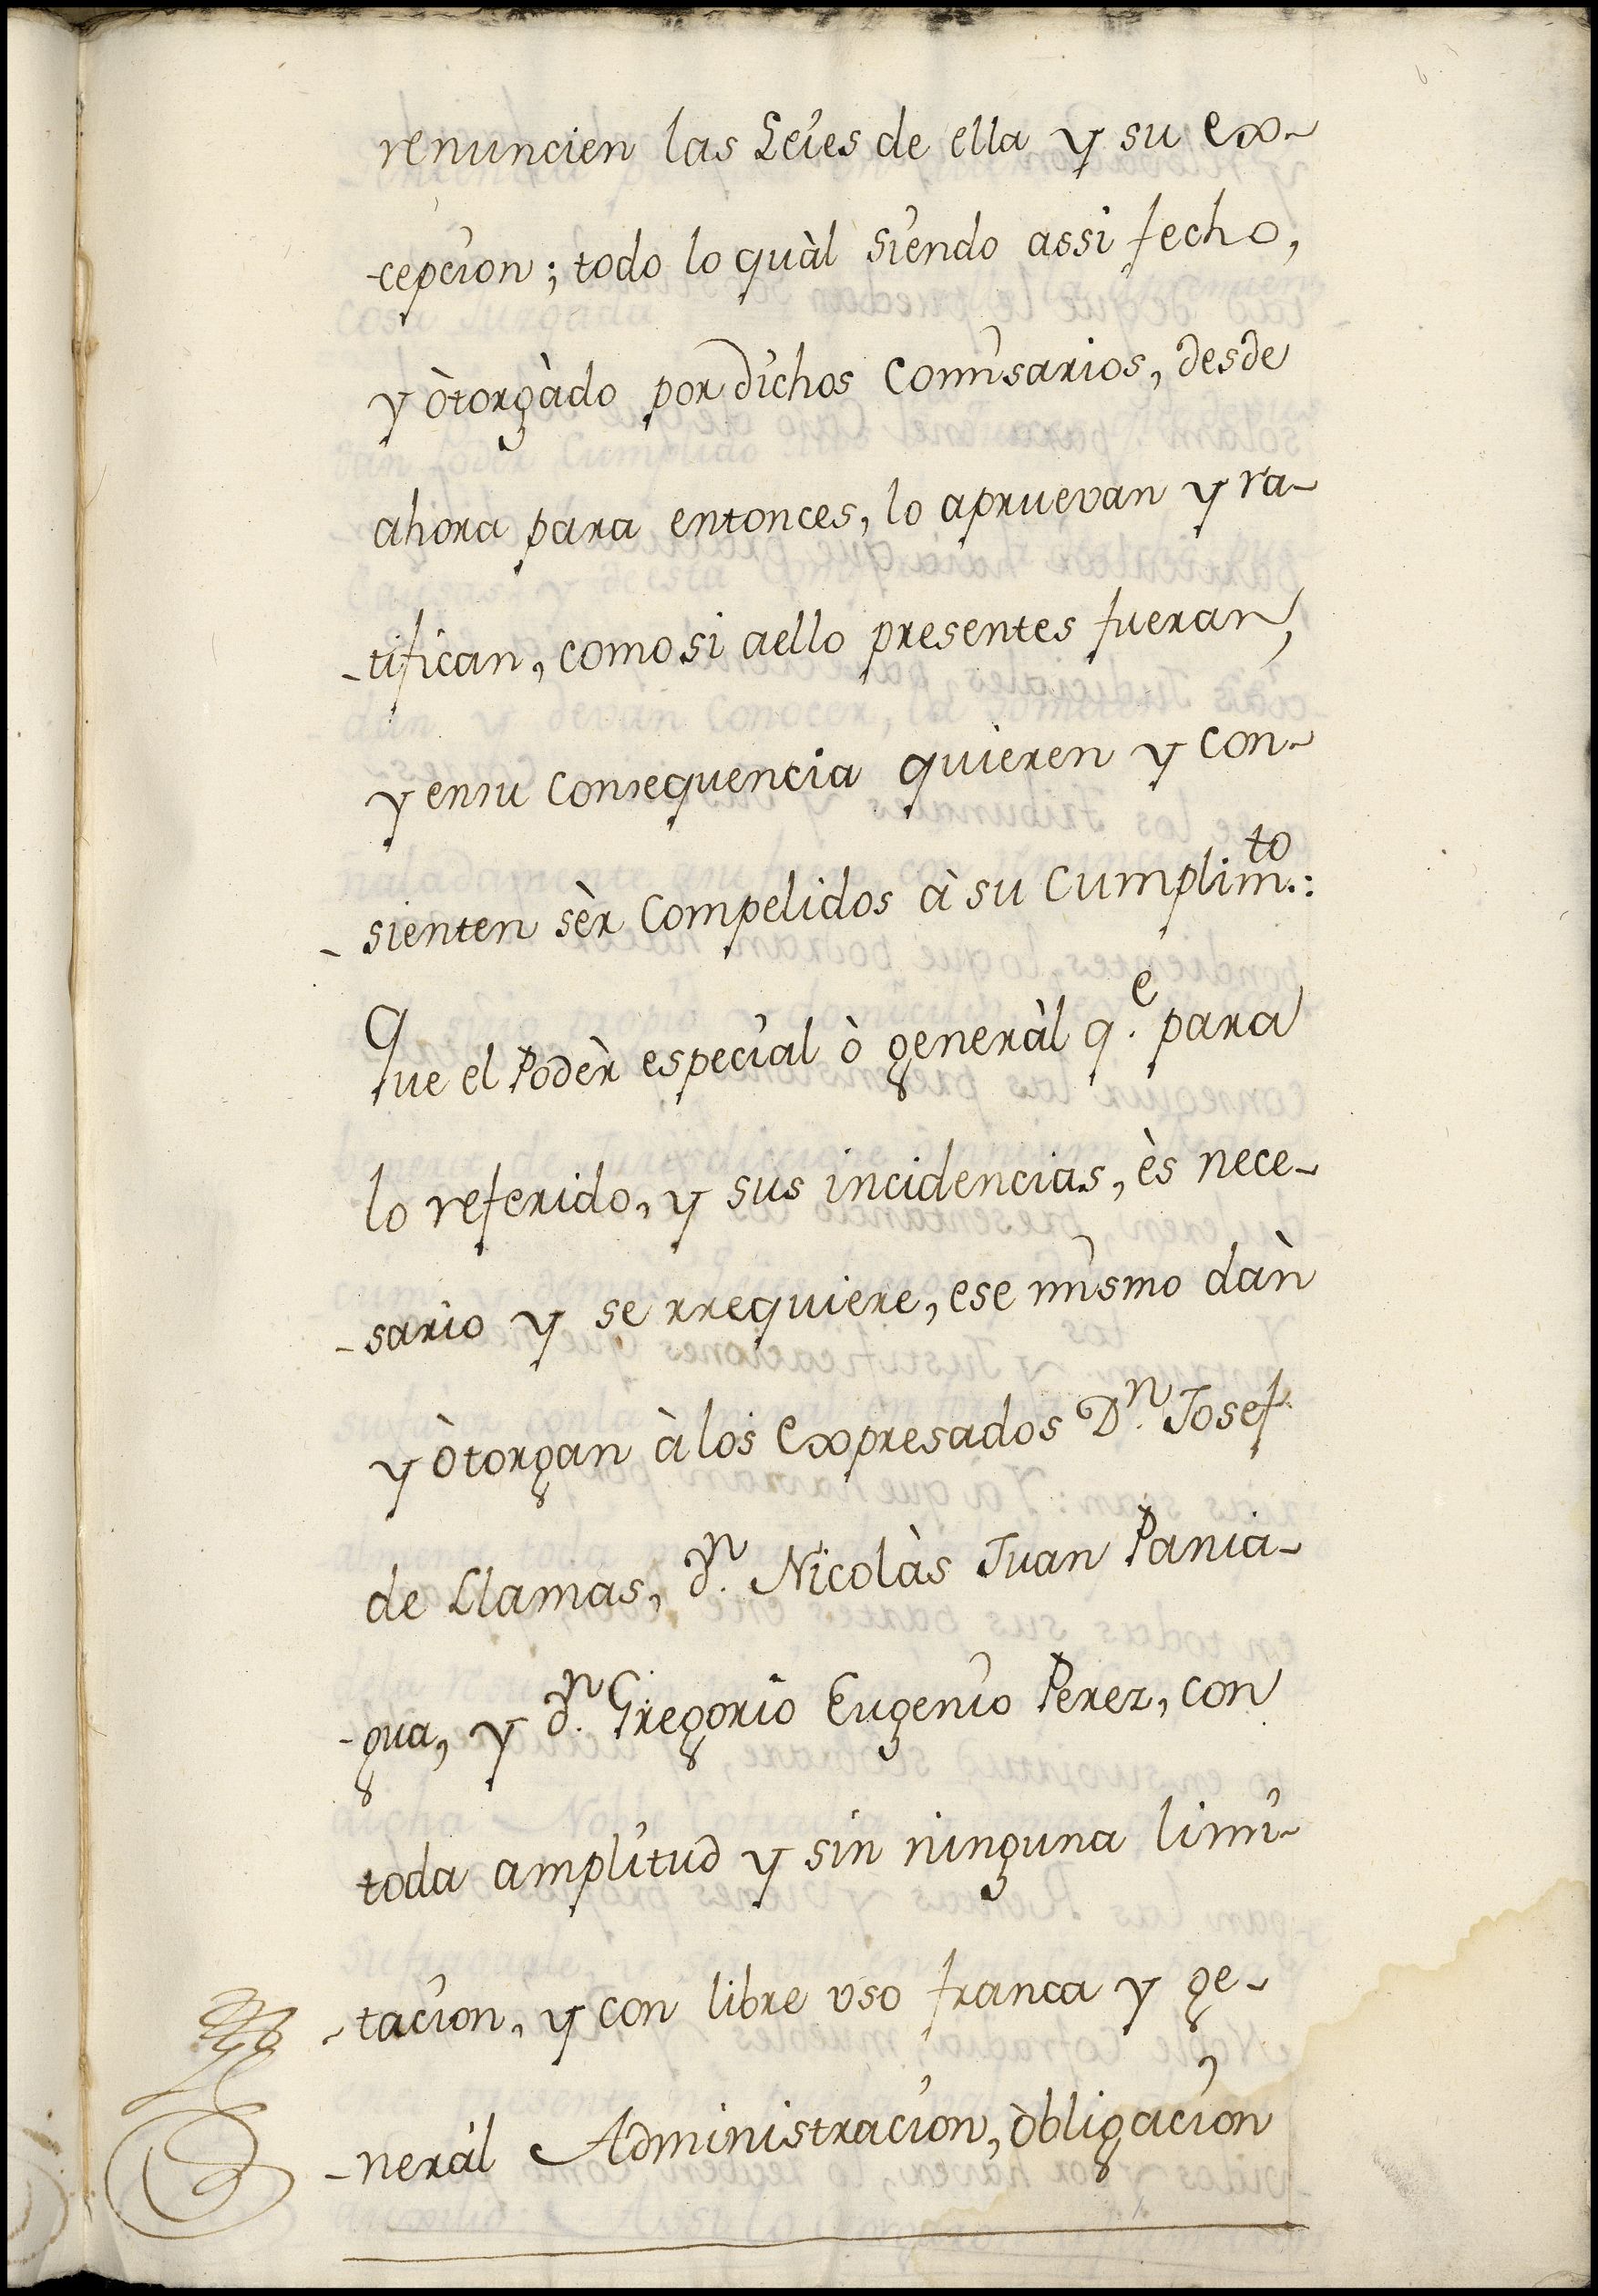 renuncien las Leies de ella y su ex-
-cepcion; todo lo quàl siendo assi fecho,
y òtorgàdo por dichos Comisarios, desde
ahora para entonces, lo apruevan y ra-
-tifican, como si aello presentes fueran,
y ensu Consequencia quieren y con-
-sienten sèr Compelidos à su Cumplim.to:
Que el Podèr especial ò generàl q.e para
lo referido, y sus incidencias, ès nece-
-sario y se rrequiere, ese mismo dàn
y òtorgan à los Expresados D.n Josef
de Llamas, d.n Nicolàs Juan Pania-
-gua, y d.n Gregorio Eugenio Perez, con
toda amplitud y sin ninguna limi-
-tacion, y con libre uso franca y ge-
-neràl Administracion, òbligacion